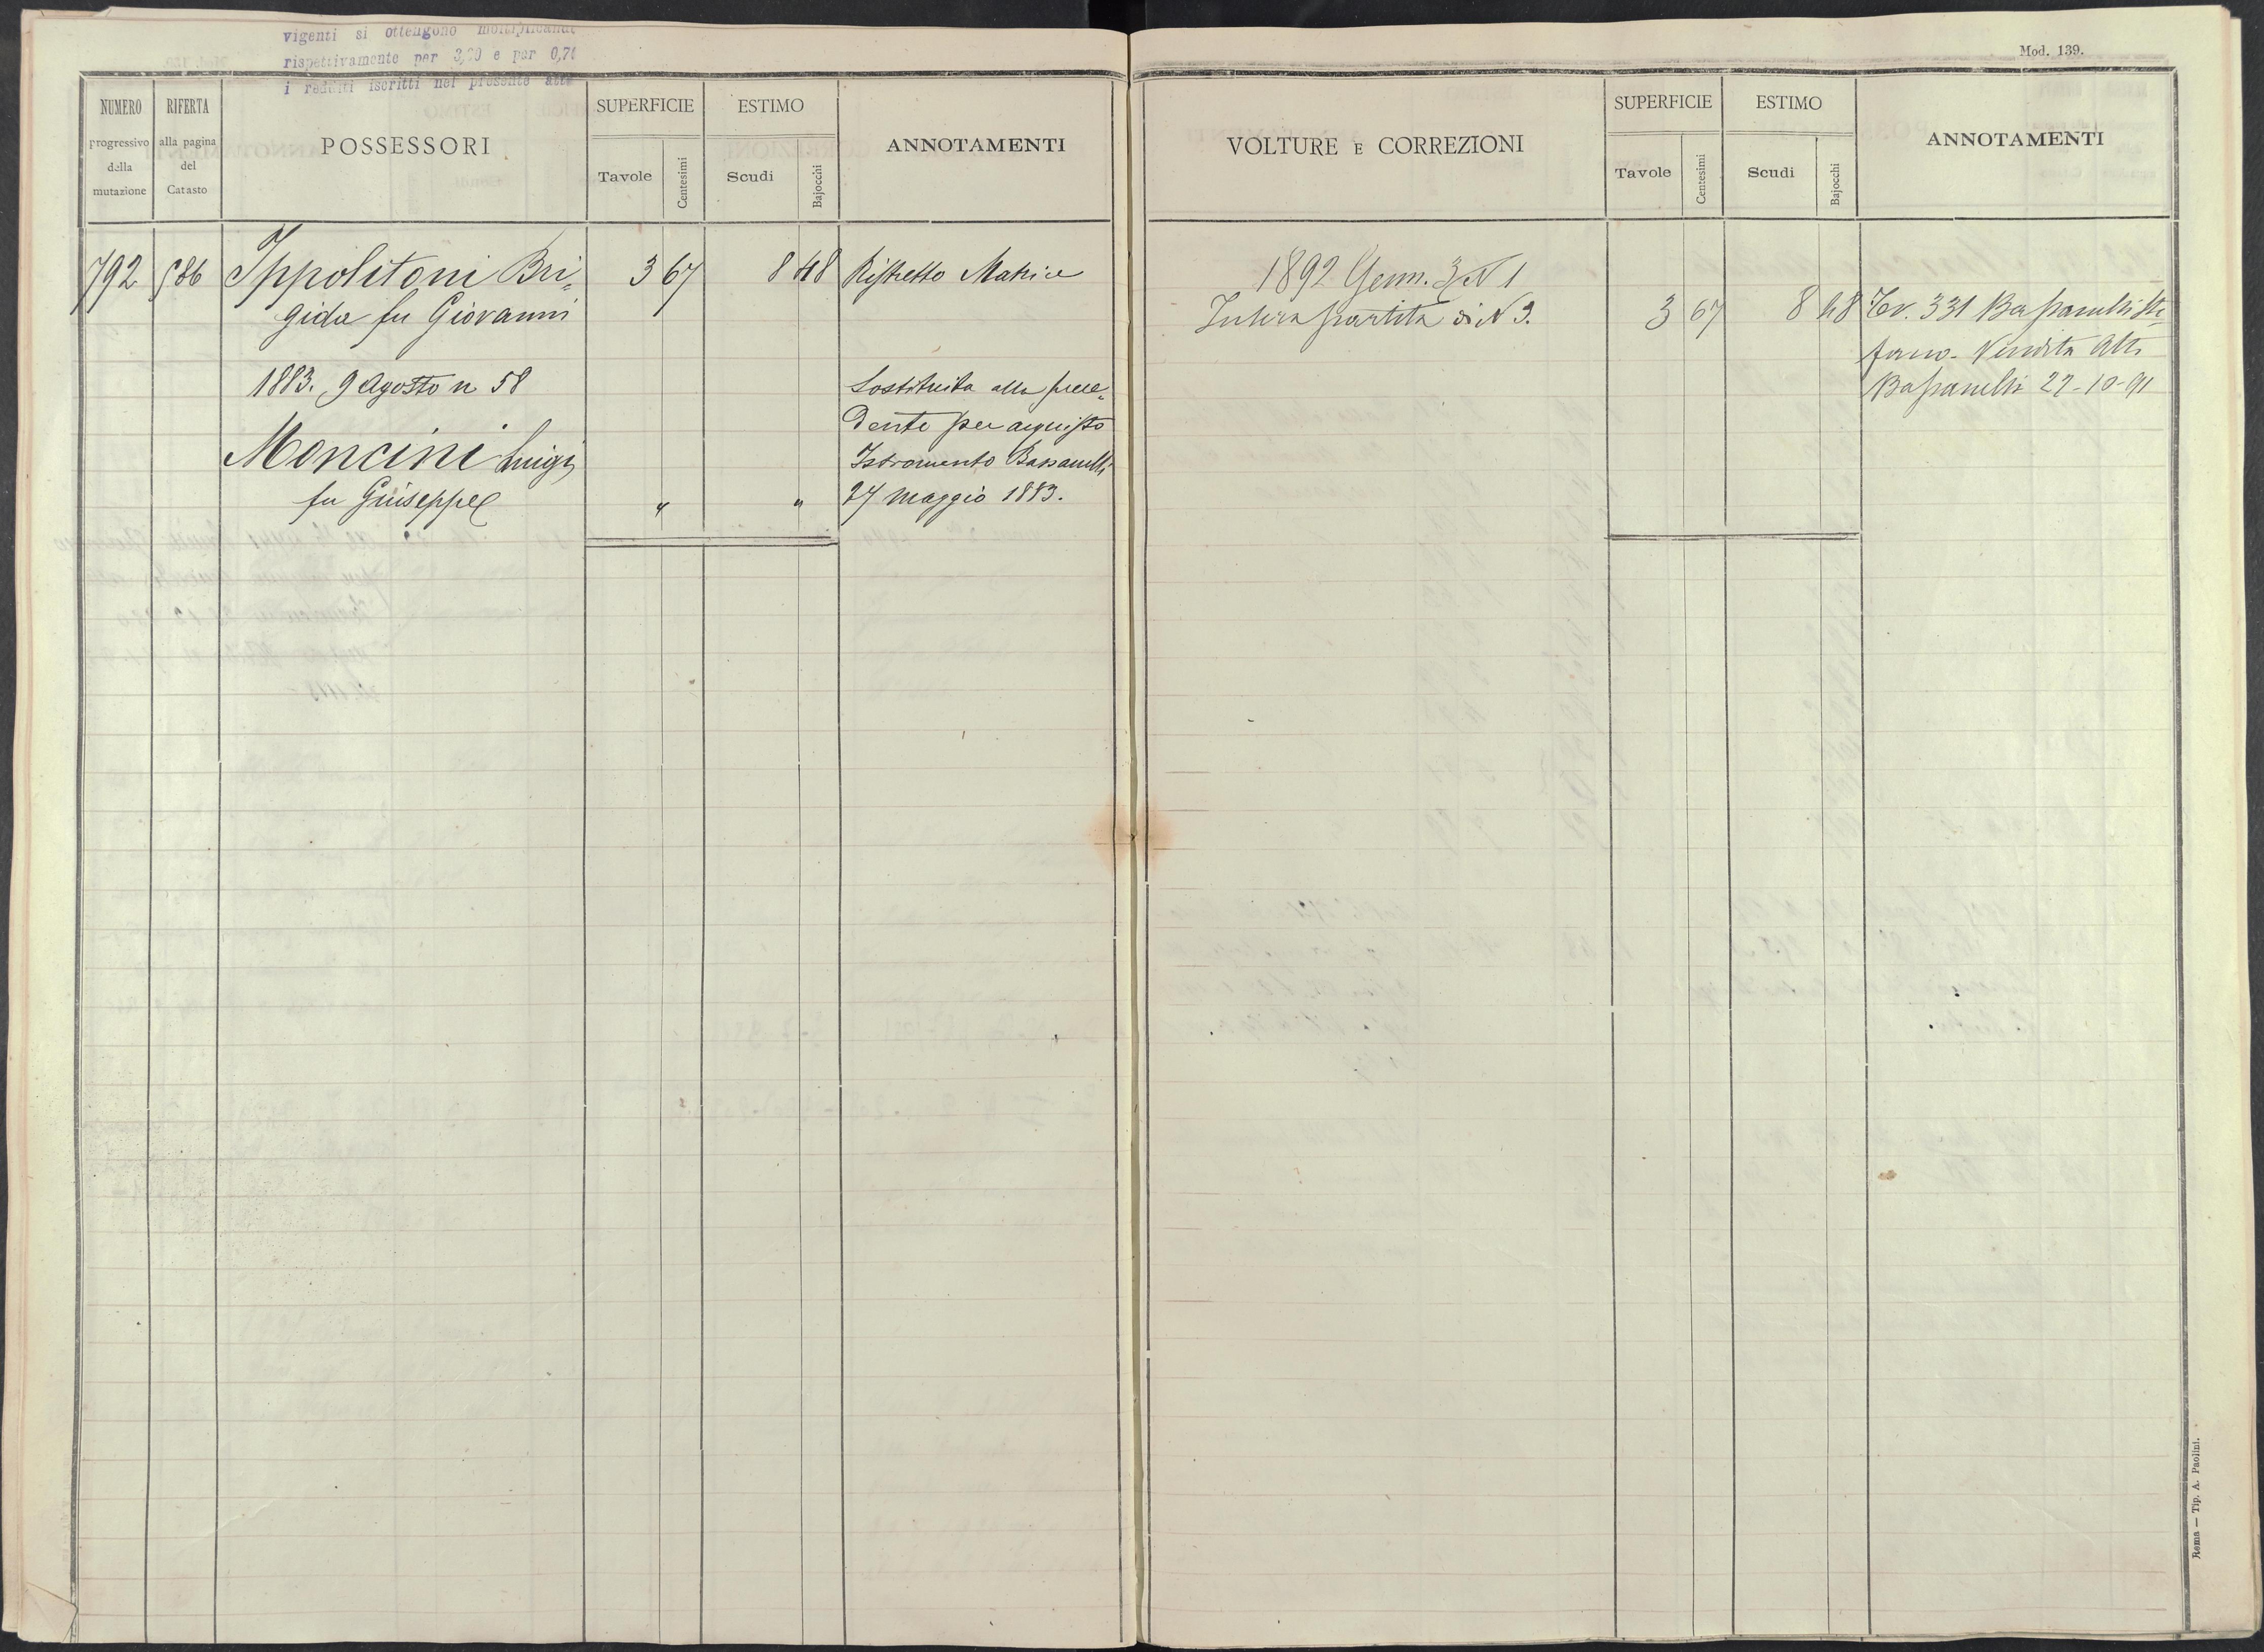 vigenti si ottengono
rispettivamente per 3,20 e per 0,70
i redditi iscritti nel presente atto
Mod. 139.
NUMERO
progressivo
della
mutazione
RIFERTA
alla pagina
del
Catasto
POSSESSORI
SUPERFICIE
Tavole
Centesimi
ESTIMO
Scudi
Bajocchi
ANNOTAMENTI
792 586 Ippolitoni Bri= 3 67 8 48 Ristretto Matrice
gida fu Giovanni
1883. 9 Agosto n 58 Sostituita alla prece=
dente per acquisto
Moncini Luigi Istromento Bassanelli
fu Giuseppe " " 27 Maggio 1883.
VOLTURE E CORREZIONI
SUPERFICIE
Tavole
Centesimi
ESTIMO
Scudi
Bajocchi
ANNOTAMENTI
1892 Genn. 3 N 1
Intera partita di N 3. 3 67 8 48 331 Bassanelli Ste=
fano - Vendita Atti
Bassanelli 22-10-91
Roma — Tip. A. Paolini.